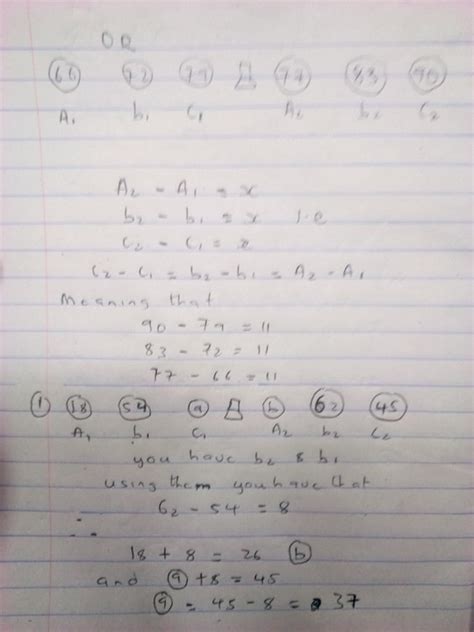 OR
66 72 79 77 83 90
A₁ b₁ C₁ A₂ b₂ C₂
A₂ - A₁ = x
b₂ - b₁ = x i.e
C₂ - C₁ = x
C₂ - C₁ = b₂ - b₁ = A₂ - A₁
Meaning that
90 - 79 = 11
83 - 72 = 11
77 - 66 = 11
① 18 54 a b 62 45
A₁ b₁ C₁ A₂ b₂ C₂
you have b₂ & b₁
using them you have that
62 - 54 = 8
∴
18 + 8 = 26 b
and a + 8 = 45
a = 45 - 8 = 37